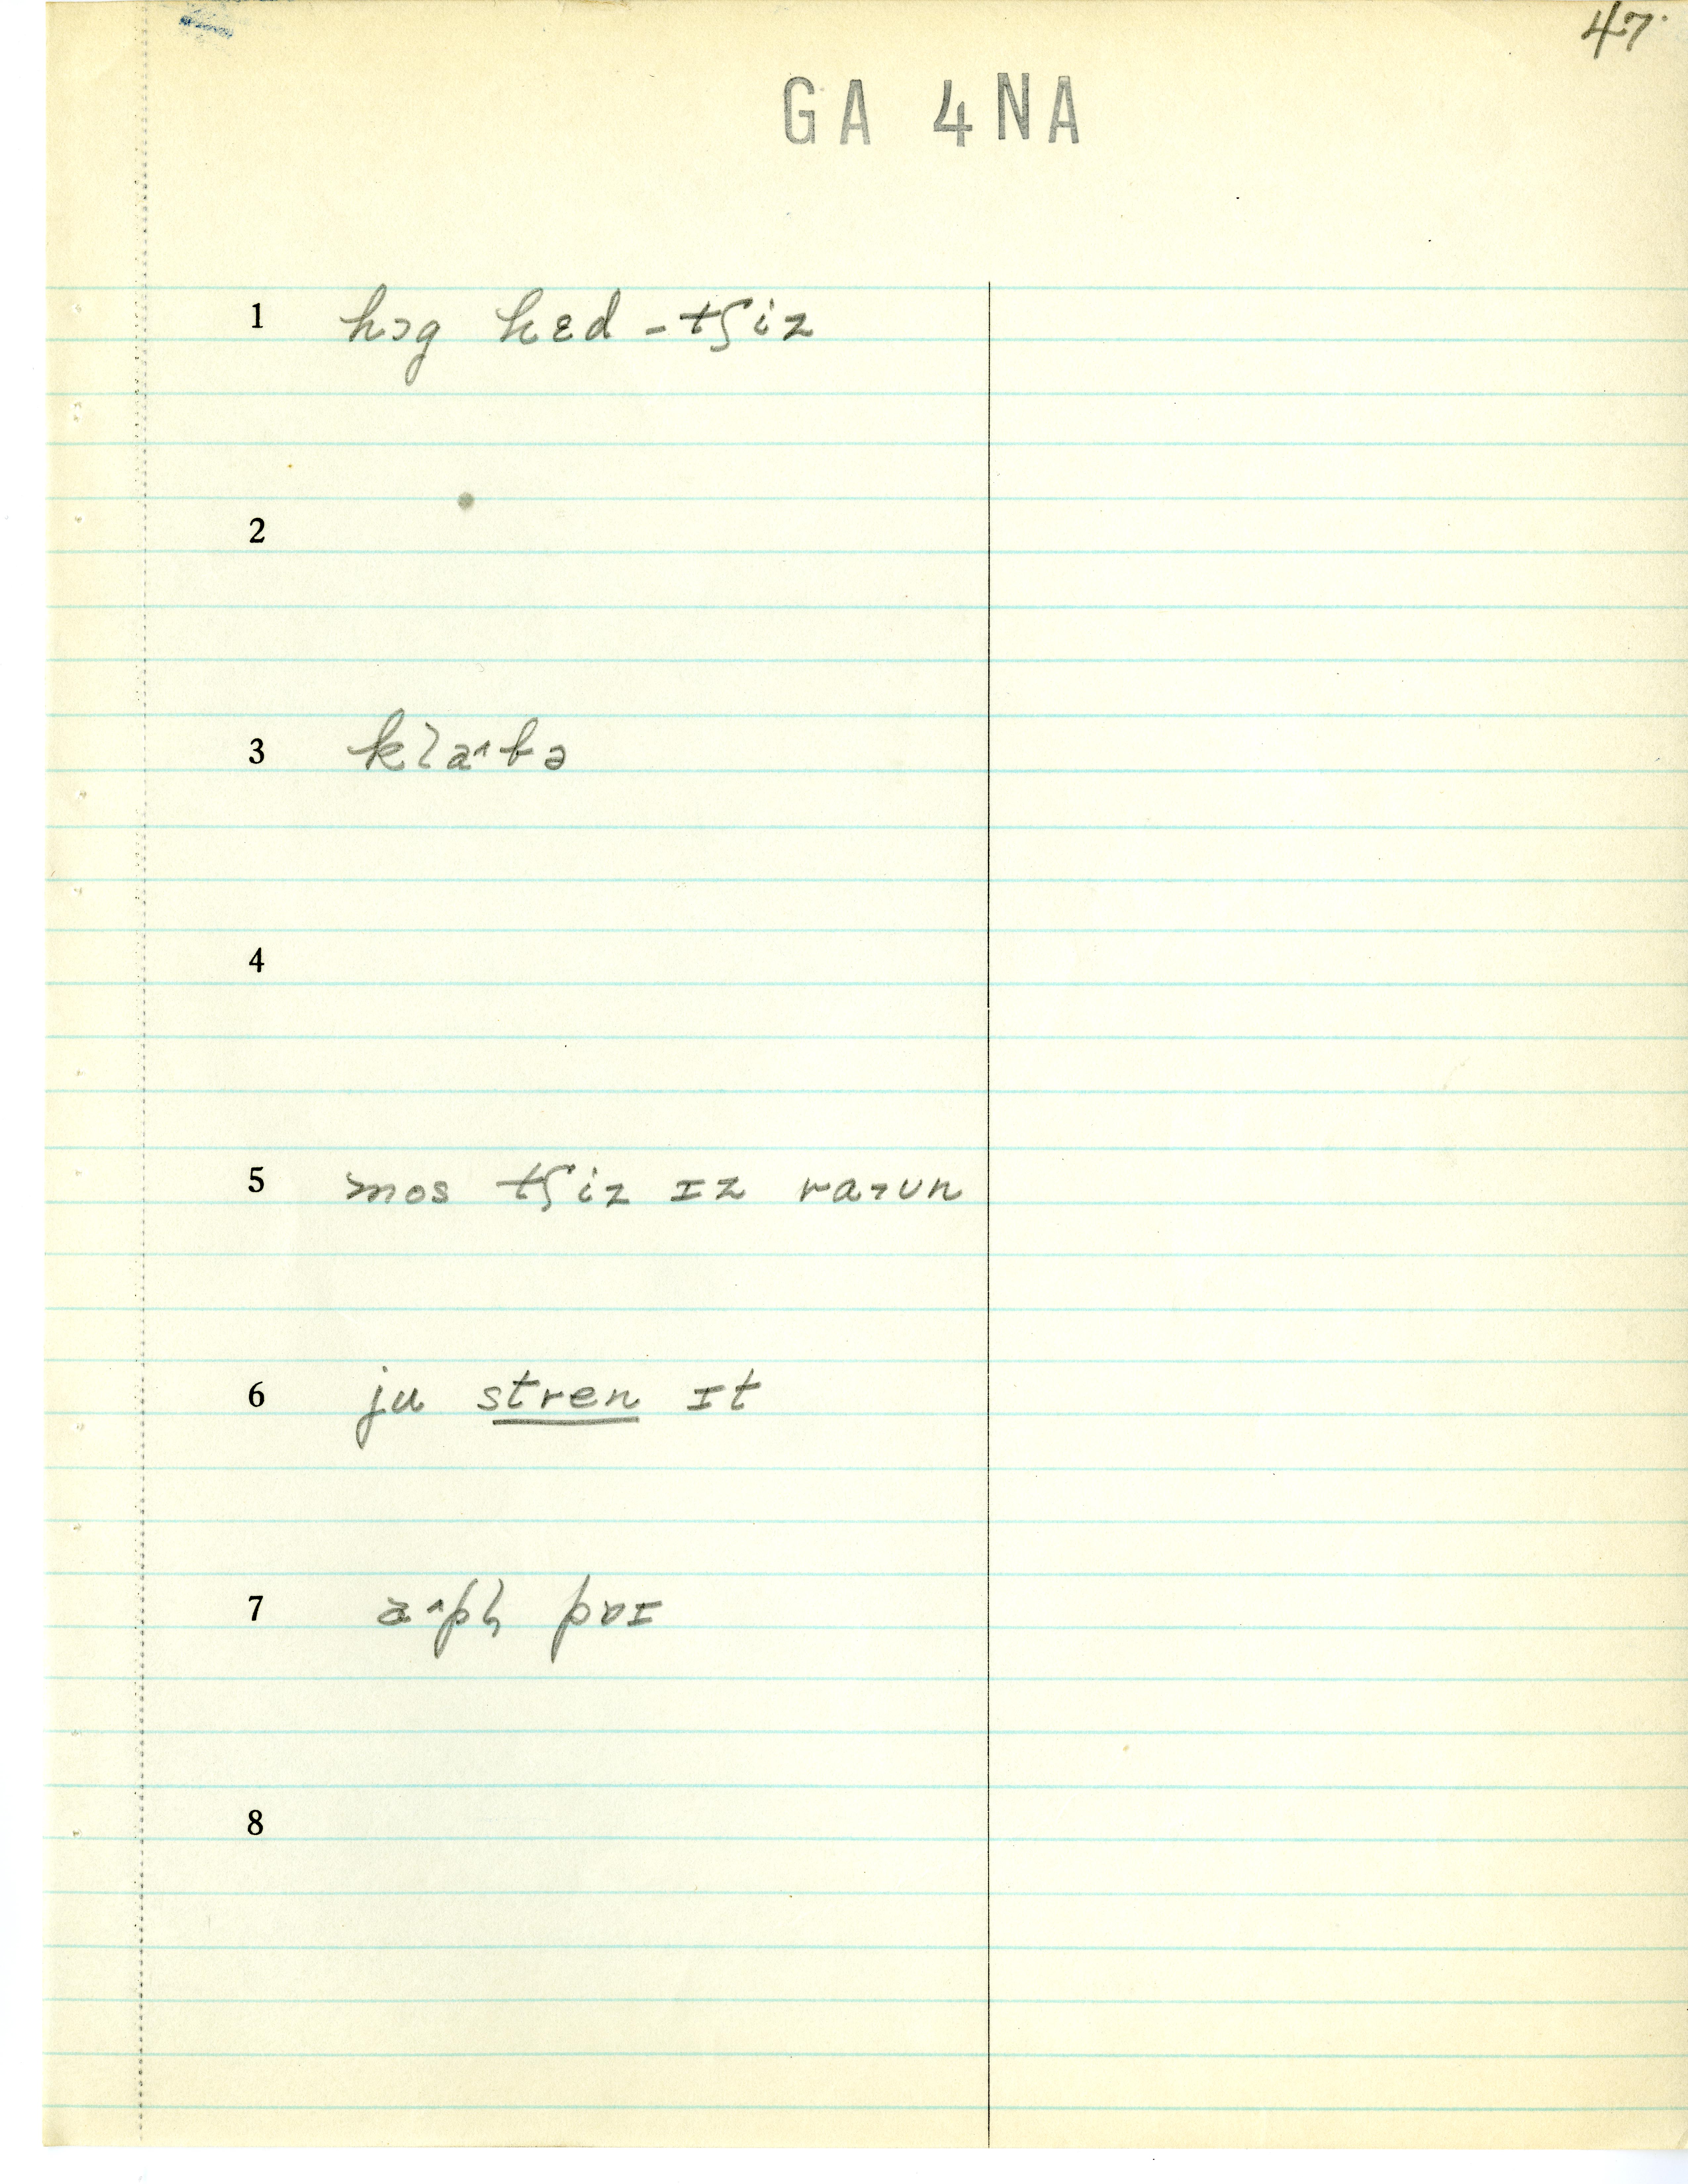 47.
GA 4NA
1 hɔg hɛd-tʃiz
2
3
4
5 mos tʃiz ɪz raᴧun
6 ju stren ɪt
7 pɒɪ
8